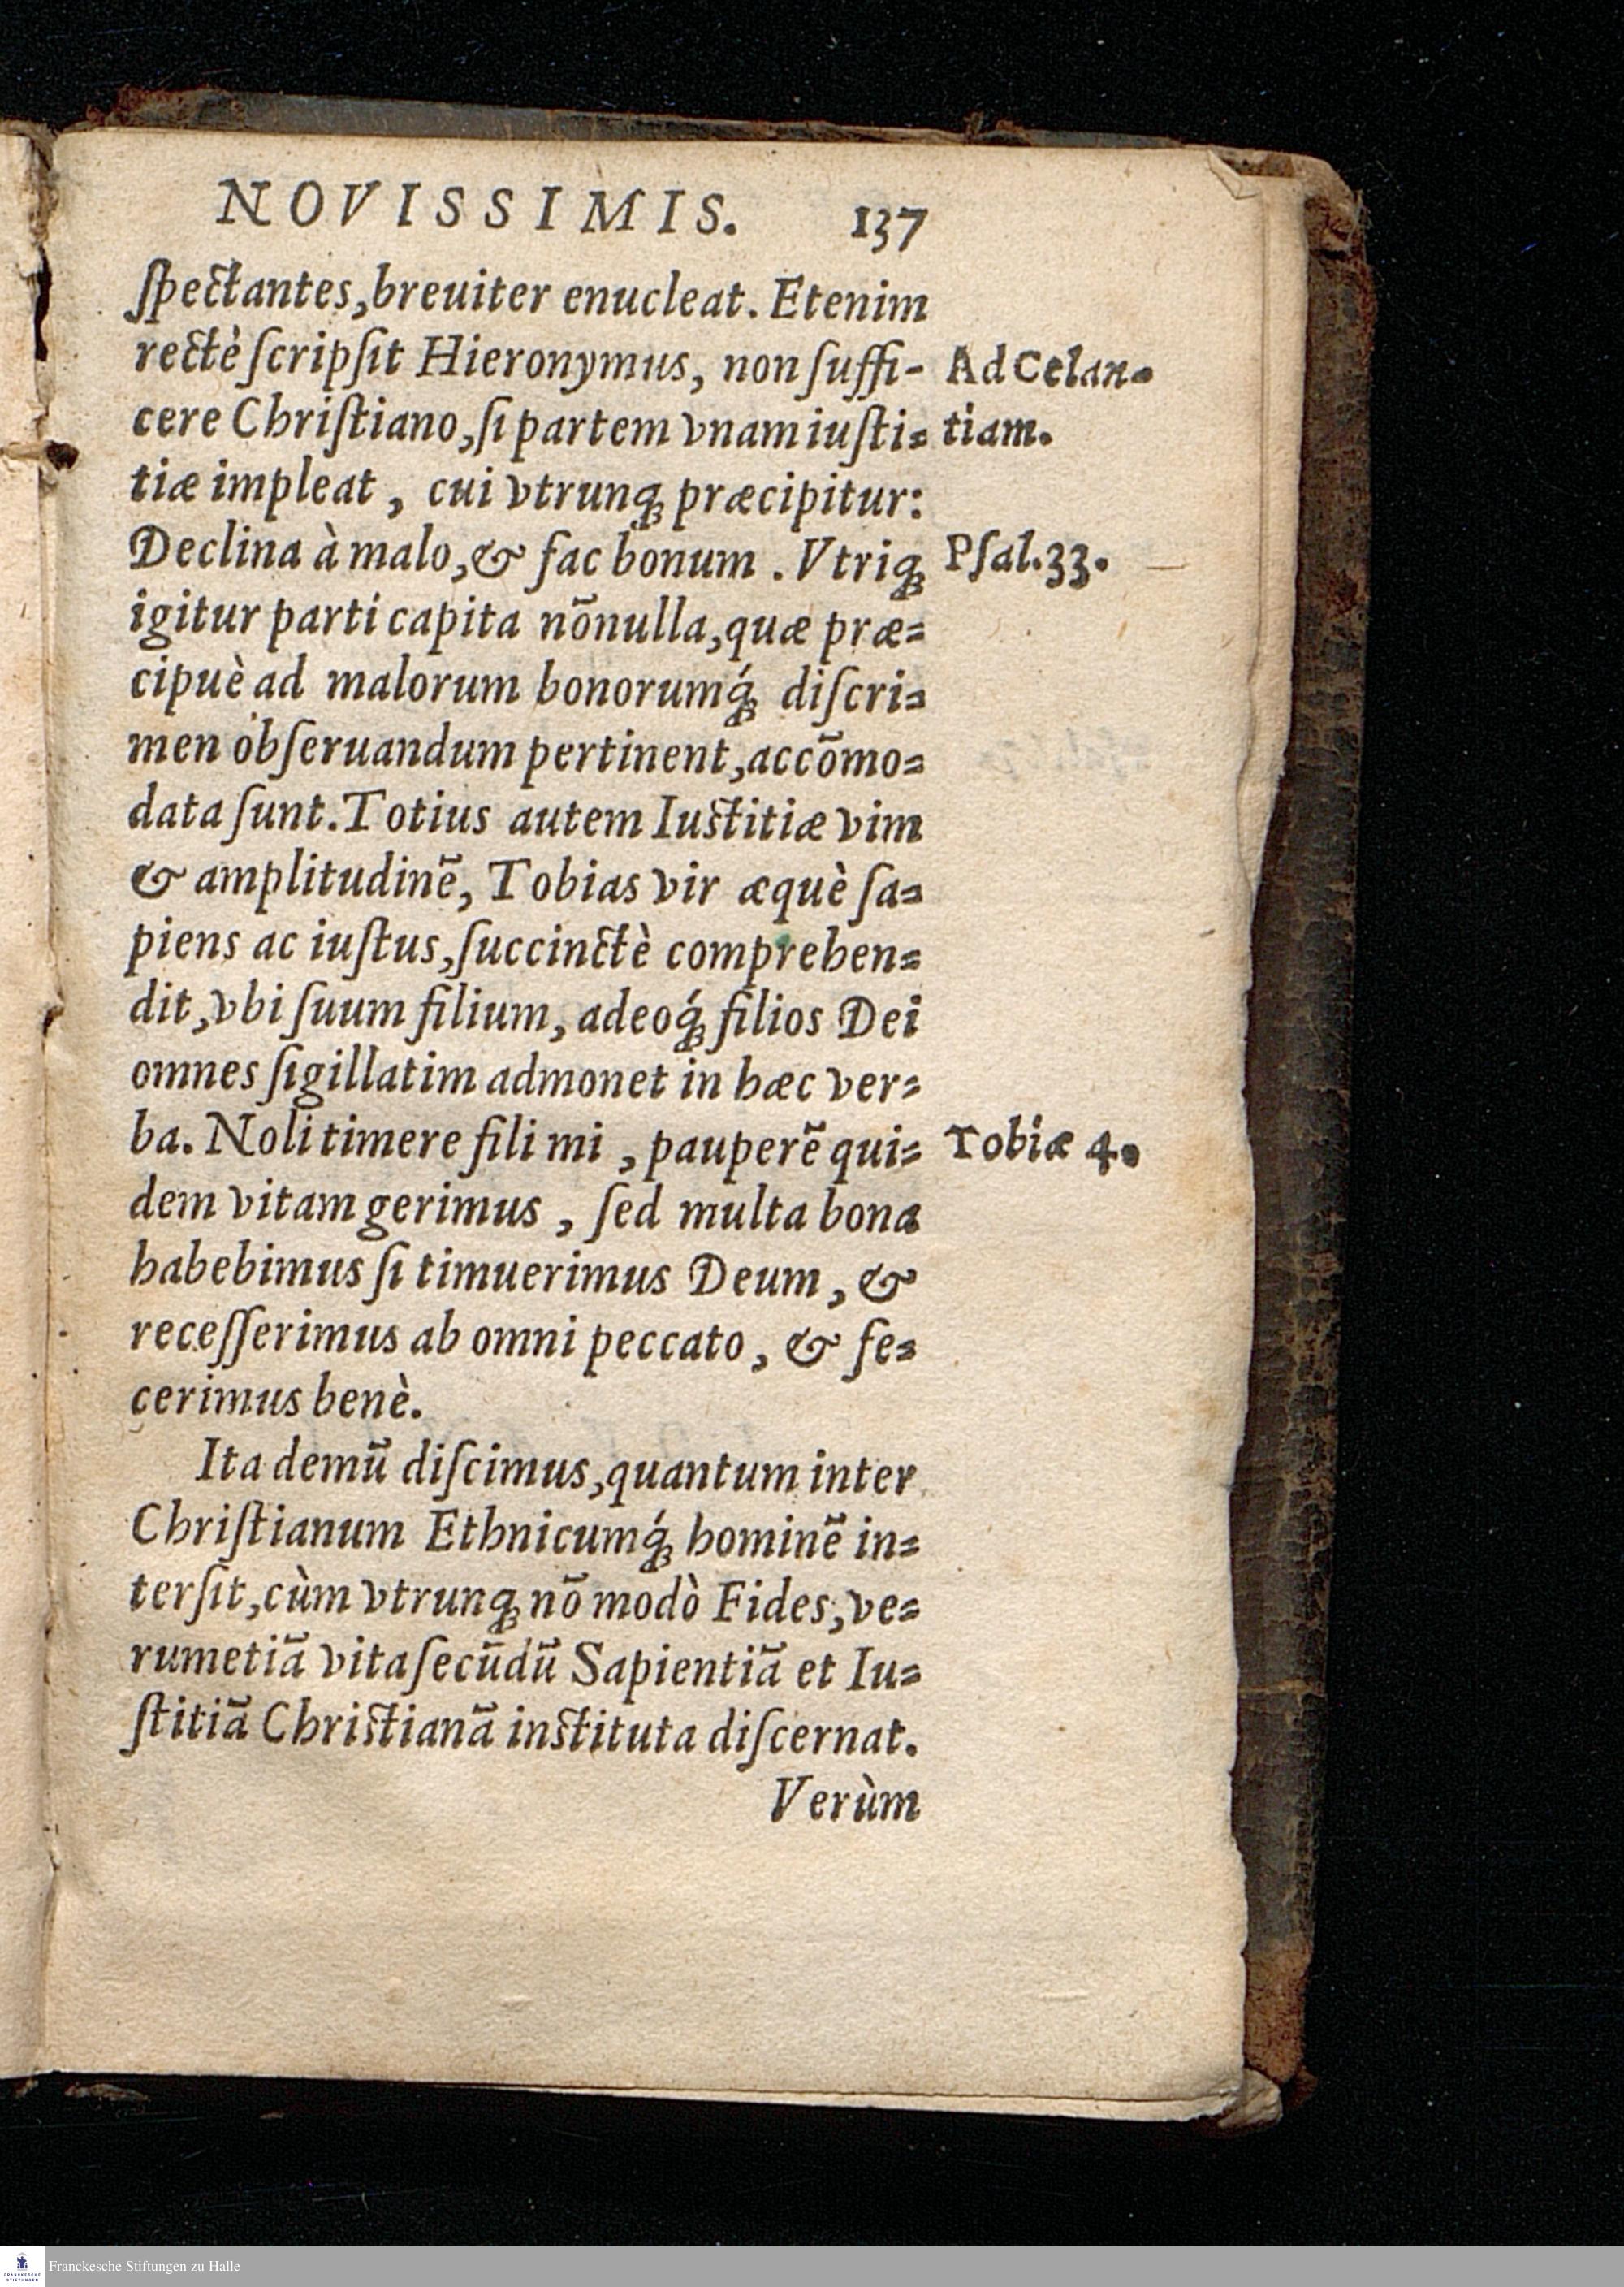 NOVISSIMIS. 137
ſpectantes,breuiter enucleat. Etenim
rectè ſcripſit Hieronymus, non ſuffi-
Ad Celan-
cere Chriſtiano,ſi partem vnam iuſti-
tiam.
tiæ impleat, cui vtrunqꝫ præcipitur:
Declina à malo,& fac bonum. Vtriqꝫ
Pſal.33.
igitur parti capita nōnulla,quæ præ-
cipuè ad malorum bonorumq́ꝫ diſcri-
men obſeruandum pertinent,accōmo-
data ſunt.Totius autem Iuſtitiæ vim
& amplitudinē, Tobias vir æquè ſa-
piens ac iuſtus,ſuccinctè comprehen-
dit,vbi ſuum filium, adeoq́ꝫ filios Dei
omnes ſigillatim admonet in hæc ver-
ba. Noli timere fili mi, pauperē qui-
Tobiæ 4.
dem vitam gerimus, ſed multa bona
habebimus ſi timuerimus Deum, &
receſſerimus ab omni peccato, & fe-
cerimus benè.
Ita demū diſcimus,quantum inter
Chriſtianum Ethnicumq́ꝫ hominē in-
terſit,cùm vtrunqꝫ nō modò Fides,ve-
rumetiā vita ſecūdū Sapientiā et Iu-
ſtitiā Chriſtianā inſtituta diſcernat.
Verùm
FRANCKESCHE
STIFTUNGEN
Franckesche Stiftungen zu Halle